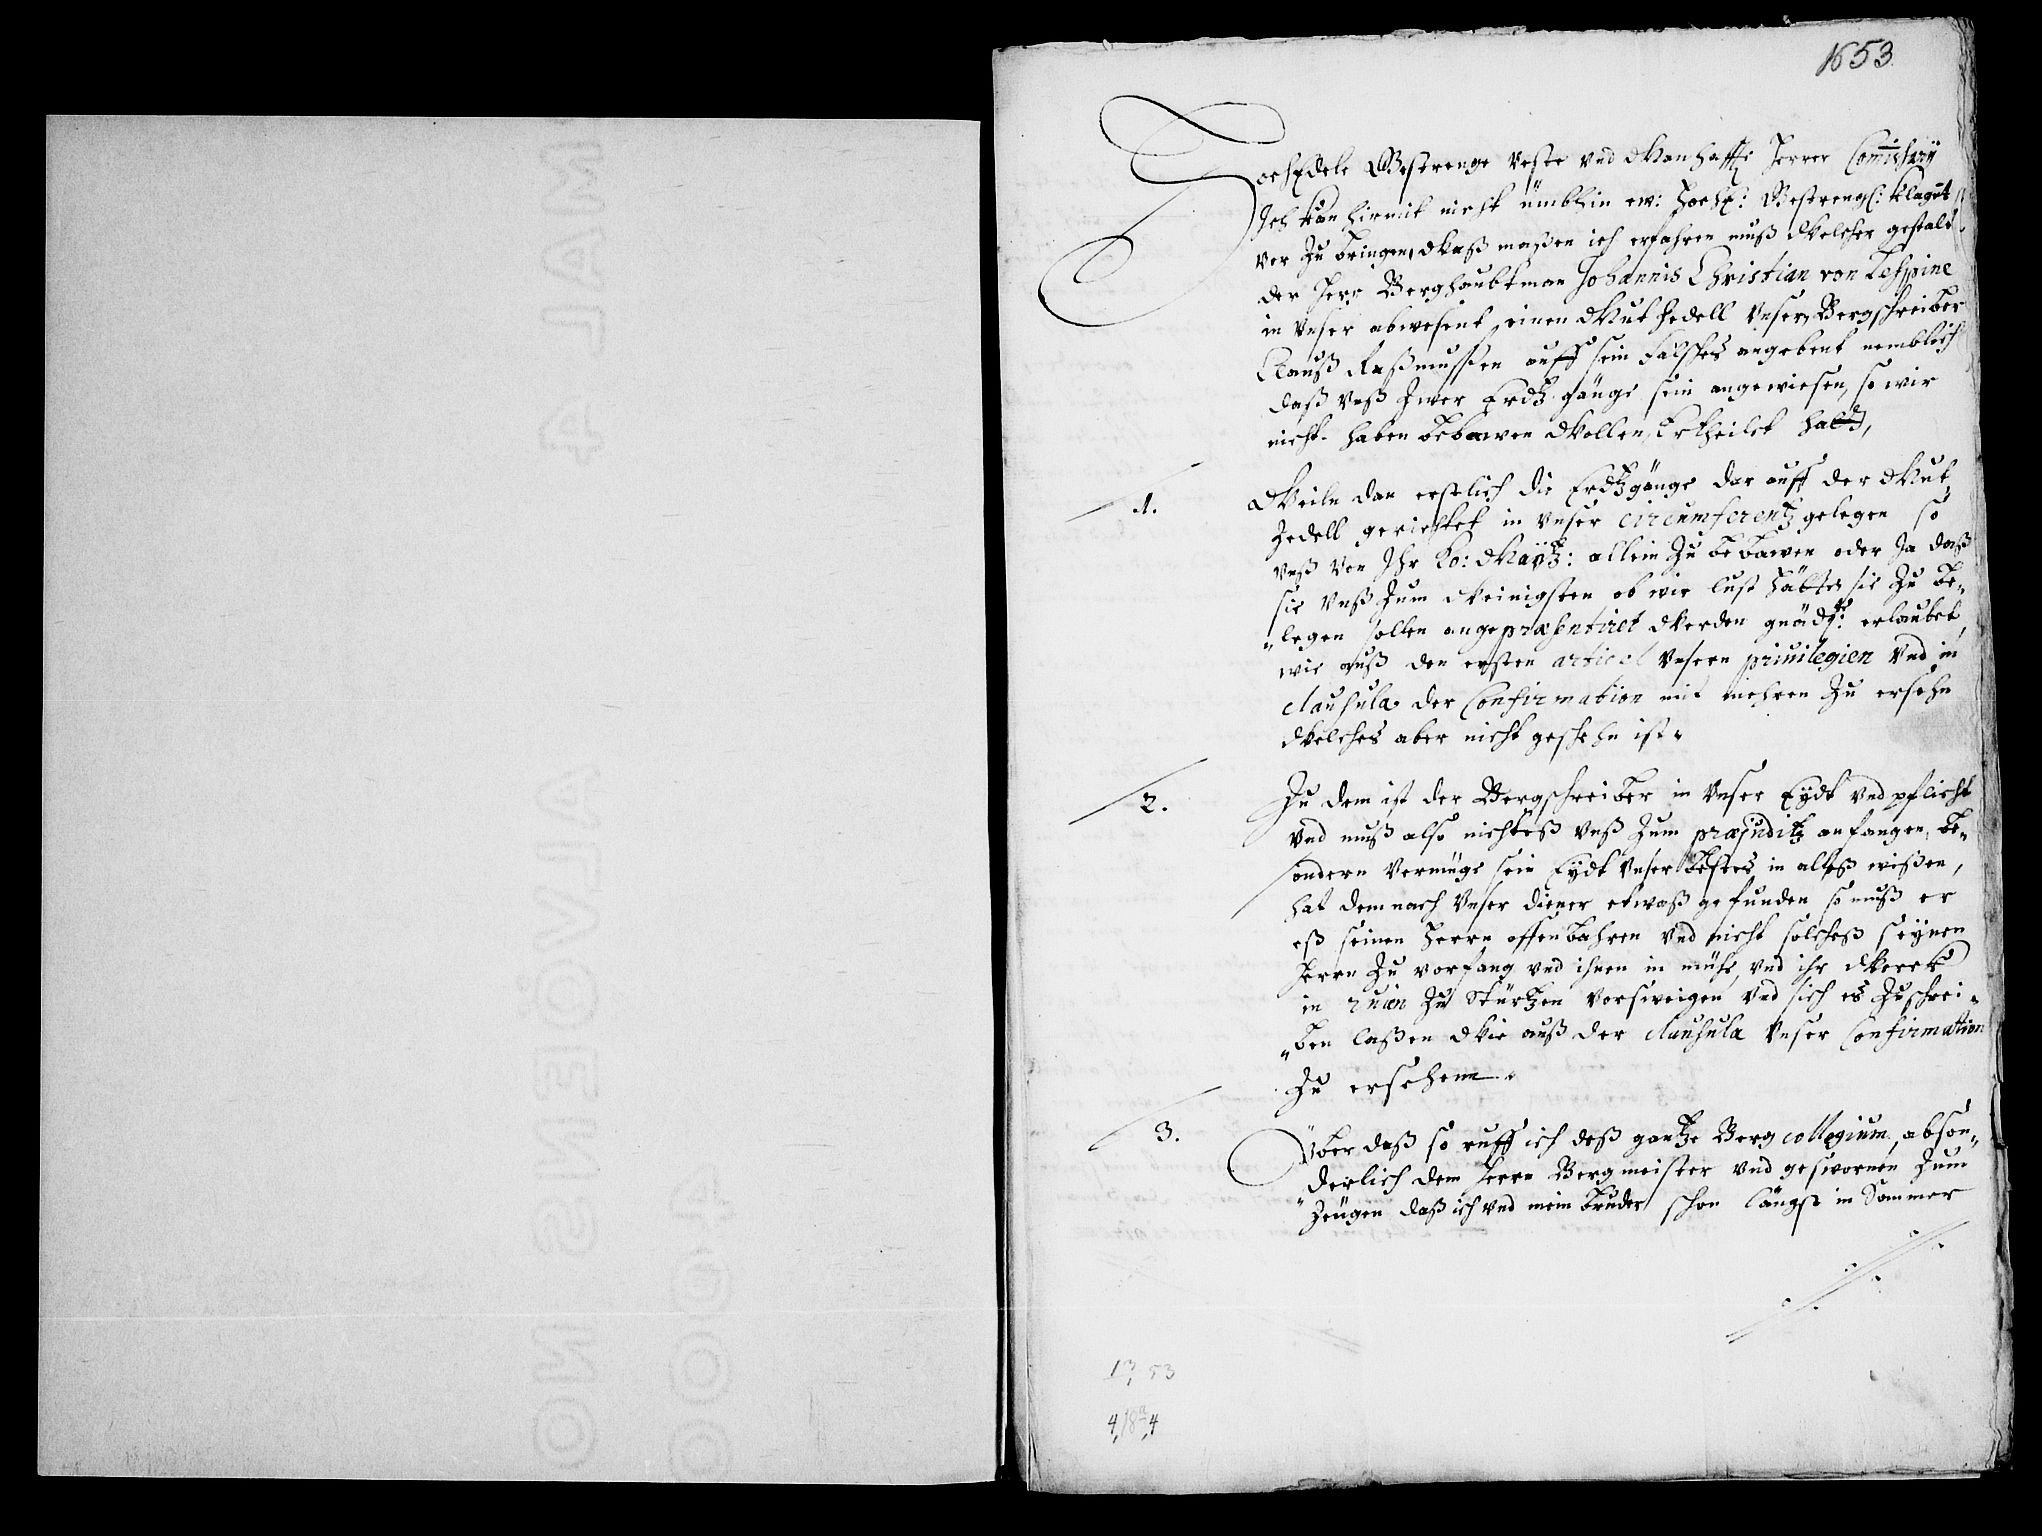 1653.
HochEdele Gestrenge Veste vnd Manhaffte Herren Commissarij
Ich kan hiemit nicht ümbhin ew: HochE: Gestrengl: klagent
vor zu bringen, Waß maßen ich erfahren muß Welcher gestalt
der Herr Berghaubtman Johannis Christian von Lespine
in Vnser abwesent einen Mut Zedell Vnsern Bergschreiber
Clauß Raßmussen auff sein falsches angebent nemblich
daß Vnß zwer Erdtz gänge sein angewiesen, so wir
nicht haben bebawen Wollen, Ertheilet hatt,
1.
Weiln dan erstlich die Erdtzgänge dar auff der Mut
Zedell gerichtet in Vnser circumferentz gelegen so
Vnß Von Ihr Kö: Maÿtt: allein zu bebawen oder Ja daß
sie Vnß zum Weinigsten ob wir lust hätten sie zu be-
legen sollen angepræsentiret Werden gnädgst: erlaubet,
wie auß den ersten articel Vnsern priuilegien Vnd in
clausula der Confirmation mit mehren zu ersehn
Welches aber nicht geschehn ist.
2.
Zu dem ist der Bergschreiber in Vnser Eydt vnd pflicht
Vnd muß also nichteß Vnß zum præjuditz anfangen, be-
sondern Vermüge sein Eydt Vnser bestes in alleß wißen,
hat demnach Vnser diener etwaß gefunden so muß er
eß seinen Herrn offenbahren Vnd nicht solcheß seynen
Herrn zu vorfang vnd ihnen in mühe, vnd ihr Werck
in ruien zu stürtzen vorsweigen Vnd sich es zuschrei-
ben laßen Wie auß der clausula Vnser Confirmation
zu ersehenn.
3.
Über daß so ruff ich deß gantze Berg collegium, abson-
derlich dem Herrn Bergmeister vnd geswornen zum
Zeugen daß ich vnd mein bruder schon längst in Sommer
13, 53
4,18a,4